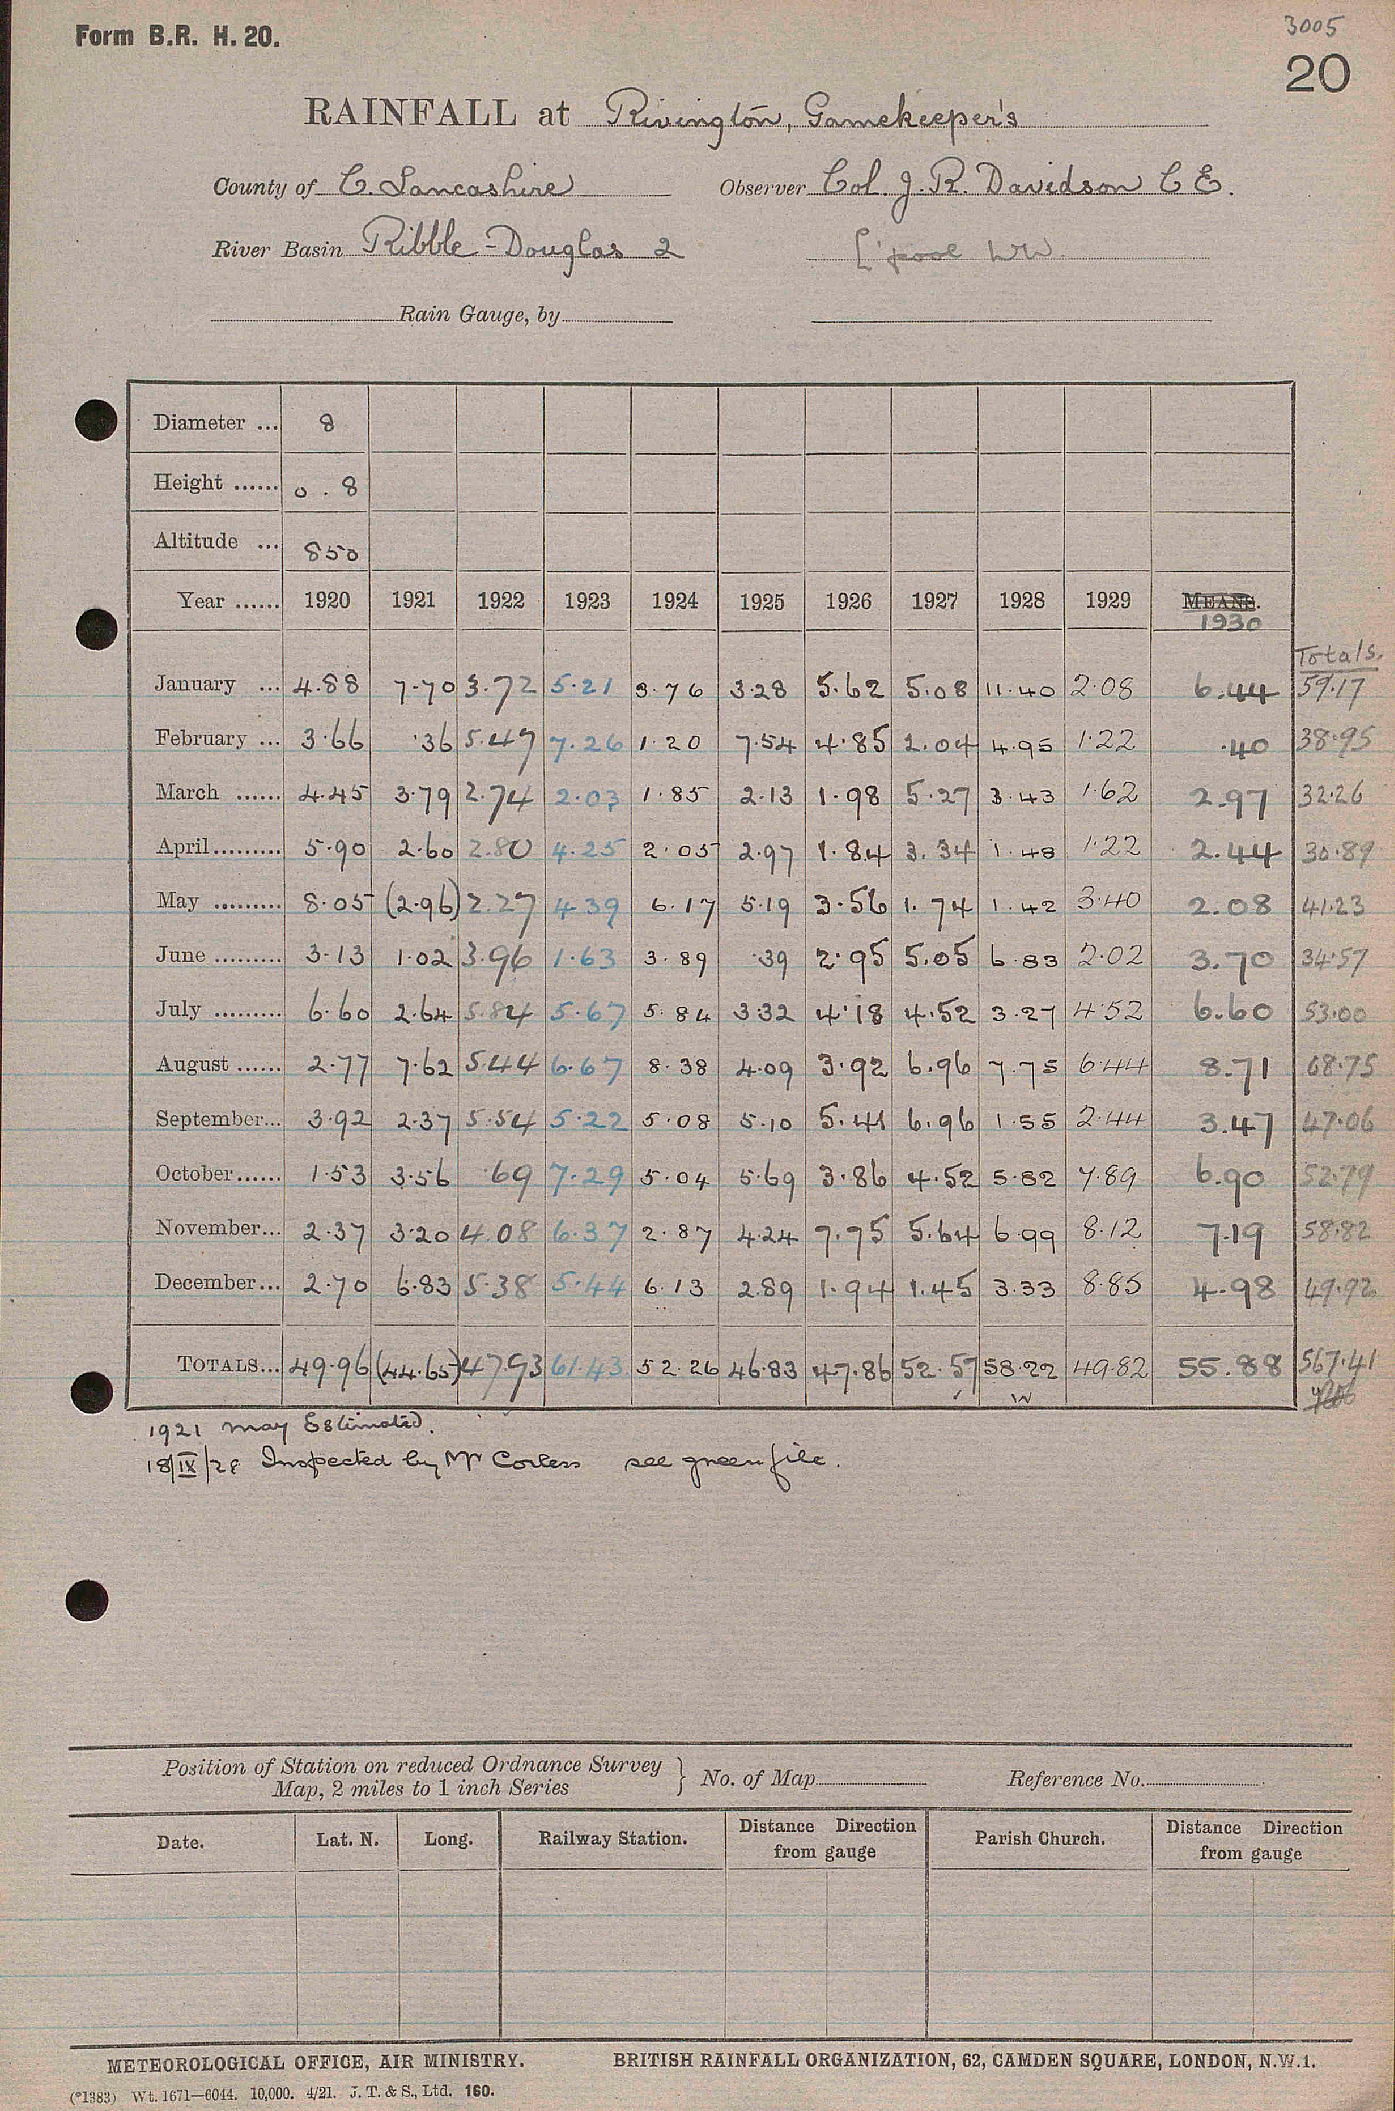 Form B.R. H. 20.
3005
20
RAINFALL at Rivington, Gamekeeper's
County of C. Lancashire Observer Col. J. R. Davidson C E.
River Basin Ribble - Douglas 2 L'pool WW.
Rain Gauge, by
Diameter ... 8
Height ...... 0 . 8
Altitude ... 850
Year ...... 1920 1921 1922 1923 1924 1925 1926 1927 1928 1929 MEANS.
1930
Totals.
January ... 4.88 7.70 3.72 5.21 3.76 3.28 5.62 5.08 11.40 2.08 6.44 59.17
February ... 3.66 .36 5.47 7.26 1.20 7.54 4.85 2.04 4.95 1.22 .40 38.95
March ...... 4.45 3.79 2.74 2.03 1.85 2.13 1.98 5.27 3.43 1.62 2.97 32.26
April......... 5.90 2.60 2.80 4.25 2.05 2.97 1.84 3.34 1.48 1.22 2.44 30.89
May ......... 8.05 (2.96) 2.27 4.39 6.17 5.19 3.56 1.74 1.42 3.40 2.08 41.23
June ......... 3.13 1.02 3.96 1.63 3.89 .39 2.95 5.05 6.83 2.02 3.70 34.57
July ......... 6.60 2.64 5.84 5.67 5.84 3.32 4.18 4.52 3.27 4.52 6.60 53.00
August ...... 2.77 7.62 5.44 6.67 8.38 4.09 3.92 6.96 7.75 6.44 8.71 68.75
September... 3.92 2.37 5.54 5.22 5.08 5.10 5.41 6.96 1.55 2.44 3.47 47.06
October...... 1.53 3.56 .69 7.29 5.04 5.69 3.86 4.52 5.82 7.89 6.90 52.79
November... 2.37 3.20 4.08 6.37 2.87 4.24 7.75 5.64 6.99 8.12 7.19 58.82
December... 2.70 6.83 5.38 5.44 6.13 2.89 1.94 1.45 3.33 8.85 4.98 49.92
TOTALS... 49.96 (44.65) 47.93 61.43 52.26 46.83 47.86 52.57 58.22 49.82 55.88 567.41
W
1921 May Estimated.
18/IX/28 Inspected by Mr Corless see green file.
Position of Station on reduced Ordnance Survey
Map, 2 miles to 1 inch Series } No. of Map Reference No.
Date. Lat. N. Long. Railway Station. Distance Direction from gauge Parish Church. Distance Direction from gauge
METEOROLOGICAL OFFICE, AIR MINISTRY. BRITISH RAINFALL ORGANIZATION, 62, CAMDEN SQUARE, LONDON, N.W.1.
(*1383) Wt. 1671—6044. 10,000. 4/21. J. T. & S., Ltd. 160.